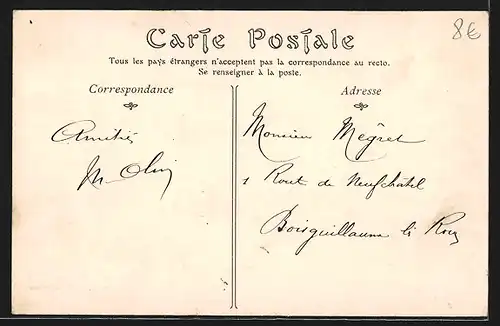 8€
Carte Postale
Tous les pays étrangers n'acceptent pas la correspondance au recto.
Se renseigner à la poste.
Correspondance
Amitiés
M. Olin
Adresse
Monsieur Mégret
1 Rout de Neufchatel
Boisguillaume li Rou